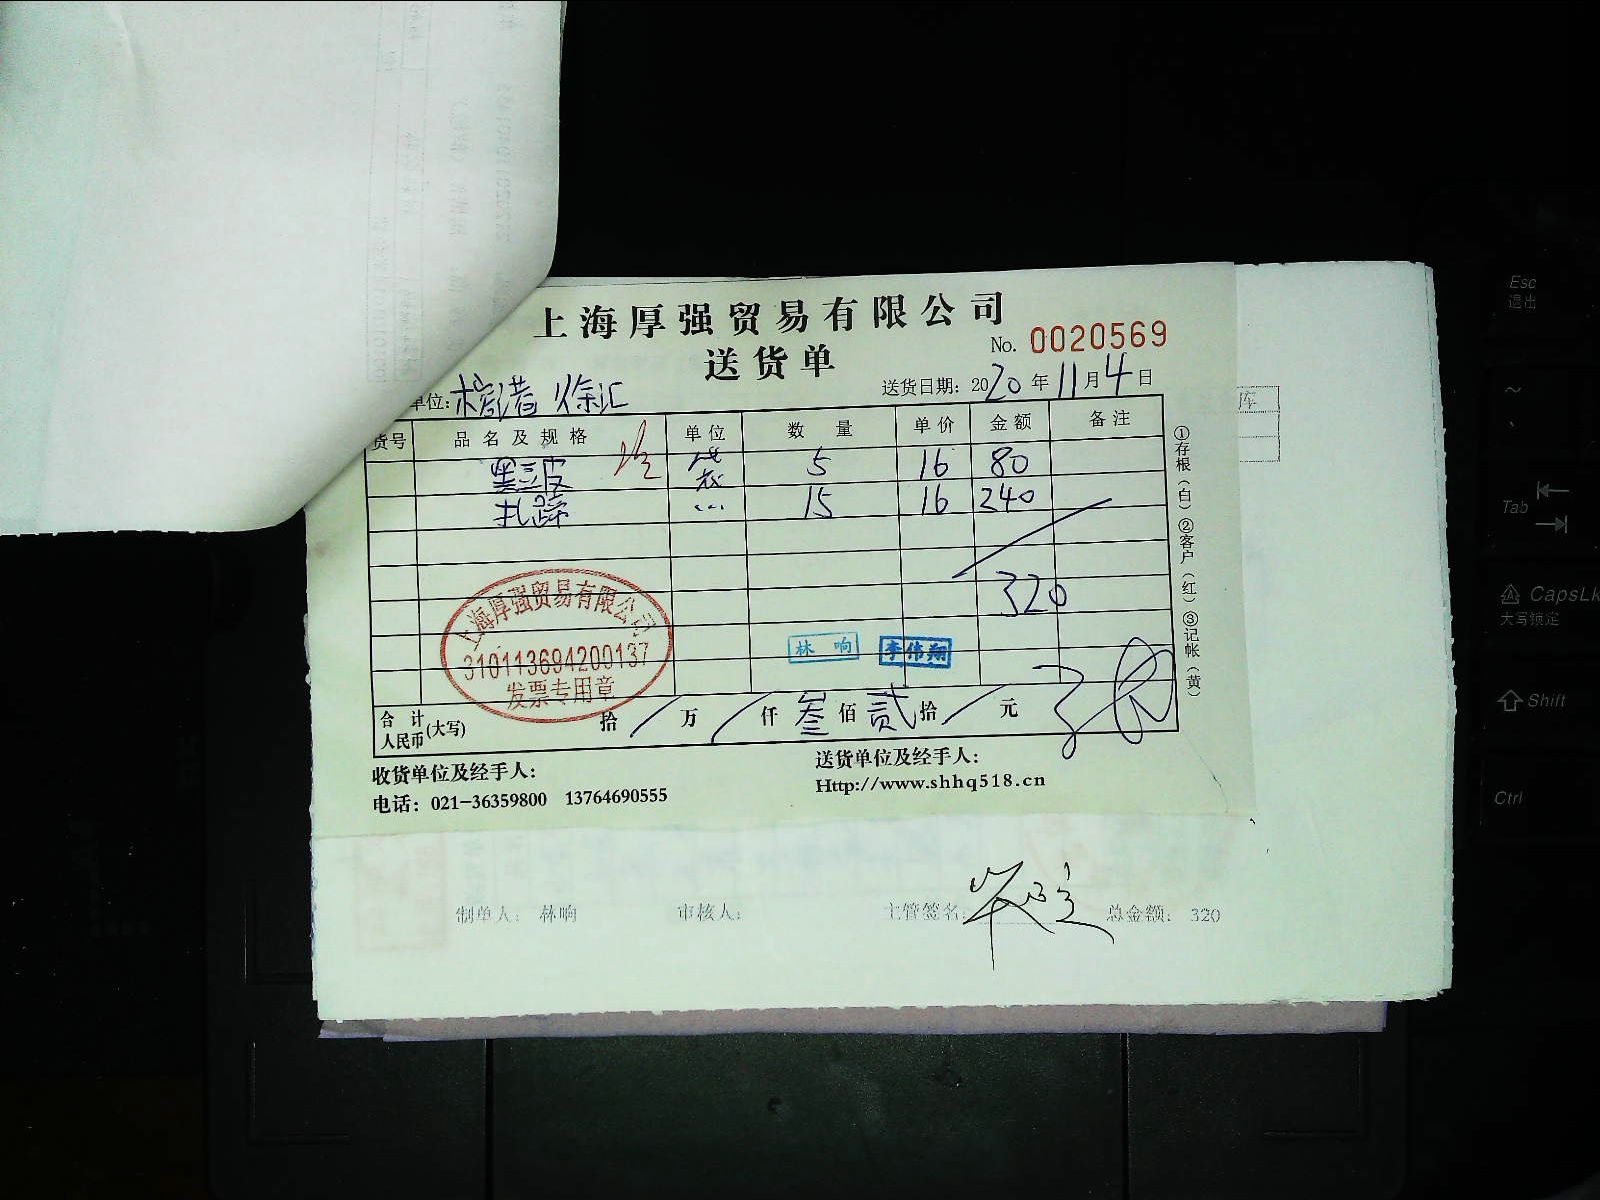 上海厚强贸易有限公司
送货单
No. 0020569
单位: 榕港 徐汇
送货日期: 2020年11月4日
货号 品名及规格 单位 数量 单价 金额 备注
黑三皮 袋 5 16 80
扎蹄 ... 15 16 240
320
上海厚强贸易有限公司
310113694200137
发票专用章
林响 李伟翔
合计人民币(大写) 拾 / 万 / 仟 叁 佰 贰 拾 / 元
①存根(白)②客户(红)③记帐(黄)
收货单位及经手人:
送货单位及经手人:
电话: 021-36359800 13764690555
Http://www.shhq518.cn
制单人: 林响 审核人: 主管签名: 总金额: 320
Esc
退出
~
Tab
CapsLk
大写锁定
Shift
Ctrl